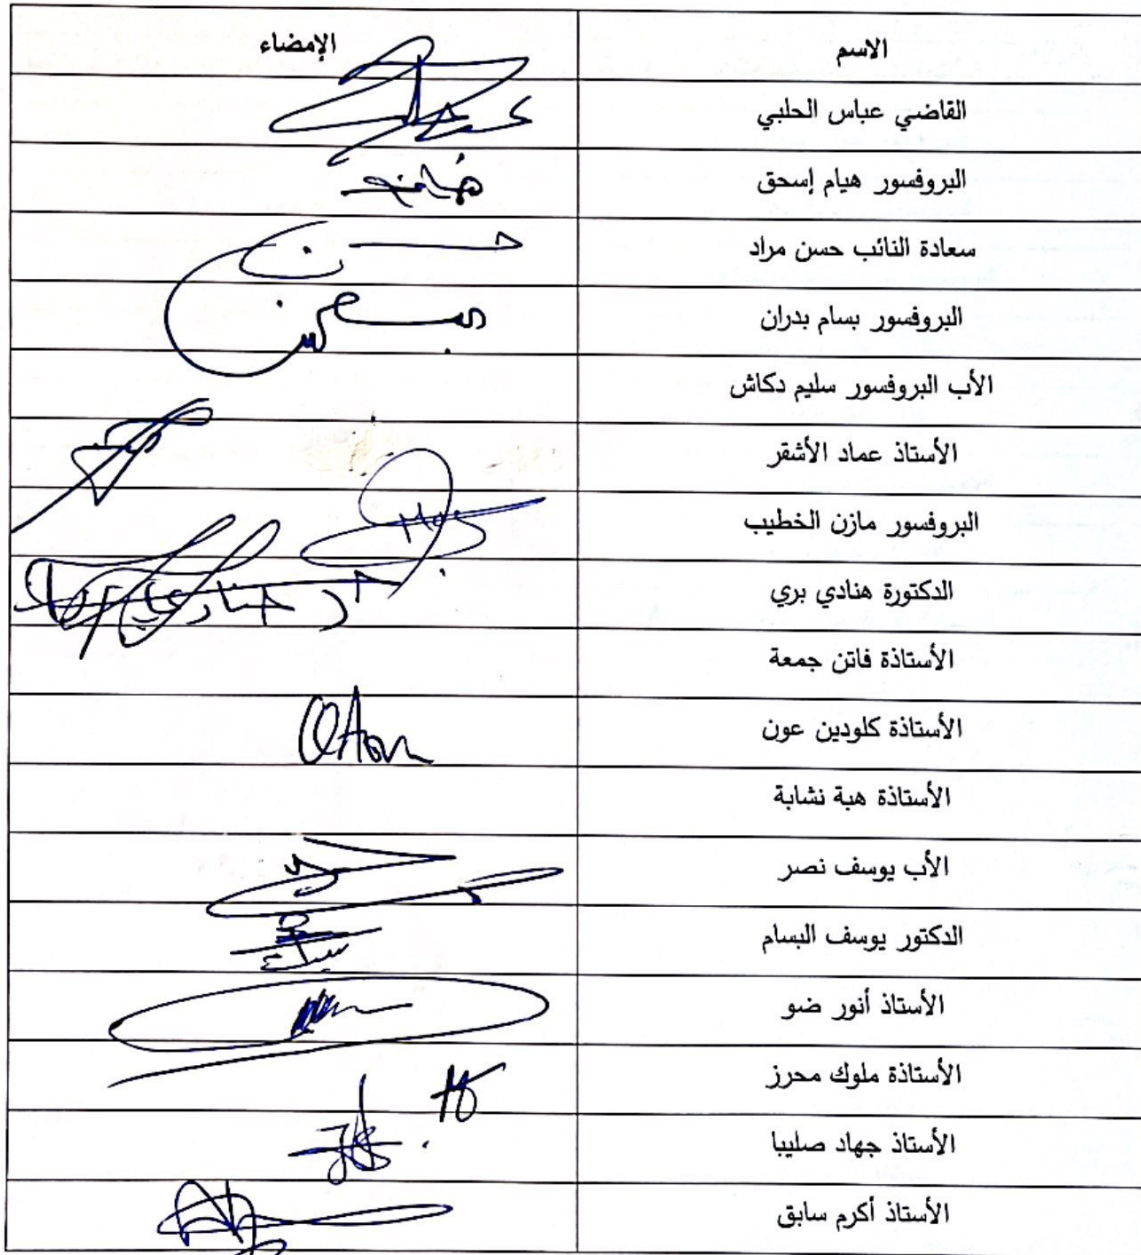 الاسم الإمضاء
القاضي عباس الحلبي
البروفسور هيام إسحق
سعادة النائب حسن مراد
البروفسور بسام بدران
الأب البروفسور سليم دكاش
الأستاذ عماد الأشقر
البروفسور مازن الخطيب
الدكتورة هنادي بري
الأستاذة فاتن جمعة
الأستاذة كلودين عون
الأستاذة هبة نشابة
الأب يوسف نصر
الدكتور يوسف البسام
الأستاذ أنور ضو
الأستاذة ملوك محرز
الأستاذ جهاد صليبا
الأستاذ أكرم سابق